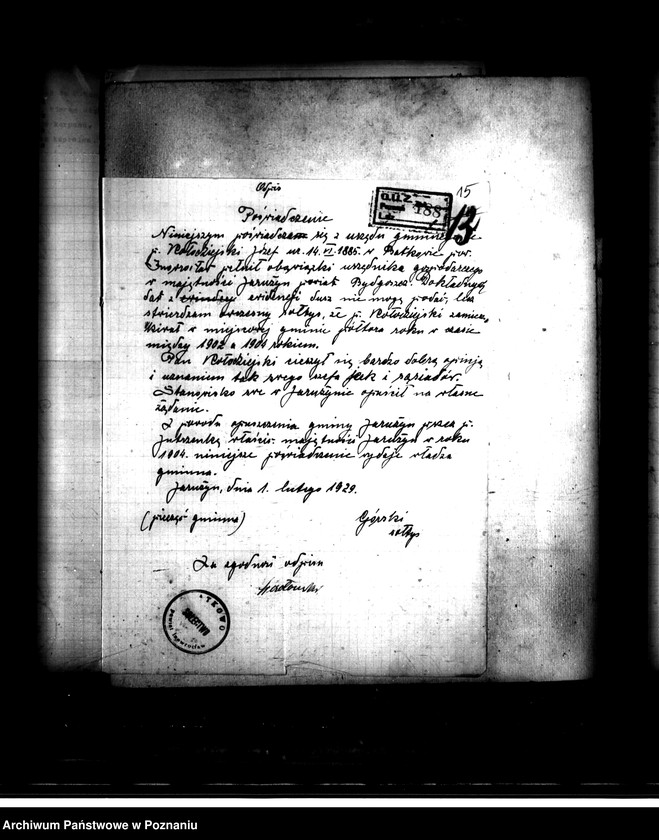 Odpis
15
13
188
Poświadczenie
Niniejszym poświadcza się z urzędu gminnego, że
p. Kołodziejski Józef ur. 14. VI. 1885. w pow.
Inowrocław pełnił obowiązki urzędnika gospodarczego
w majętności Jarużyn powiat Bydgoszcz. Dokładnych
dat z evidencji dusz nie mogę podać, lecz
stwierdzam sołtys, że p. Kołodziejski zamiesz
kiwał w miejscowej gminie półtora roku w czasie
między 1902 a 1904 rokiem.
Pan Kołodziejski cieszył się bardzo dobrą opinją
i uznaniem tak swego szefa jak i sąsiadów.
Stanowisko swe w Jarużynie opuścił na własne
żądanie.
Z powodu opuszczenia gminy Jarużyn przez p.
właśc. majętności Jarużyn w roku
1904. niniejsze poświadczenie wydaje władza
gminna.
Jarużyn, dnia 1. lutego 1929.
(pieczęć gminna) Górski
sołtys
Za zgodność odpisu
SOŁECTWO
powiat Inowrocław
Archiwum Państwowe w Poznaniu